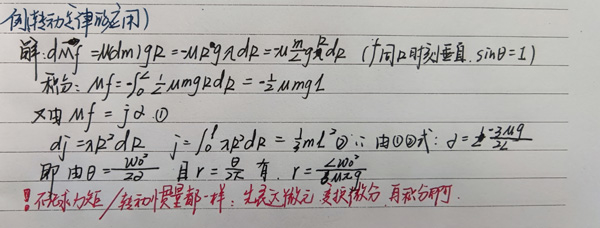 例(转动定律的应用)
解: dMf = -μ(dm)gR = -μR²gλdR = -μ(m/L)gRdR (f同R时刻垂直, sinθ=1)
积分: Mf = -∫₀ᴸ ½μmgRdR = -½μmgl
又由 Mf = jα ①
dj = λR²dR j = ∫₀ˡ λR²dR = ⅓ml² ② ∴ 由①②式: α = -3μg/2L
即 由θ = ω₀²/2α 且 r = θ/2π 有. r = Lω₀²/6μπg
! 不论求力矩/转动惯量都一样: 先表达微元, 变换微分, 再积分即可.